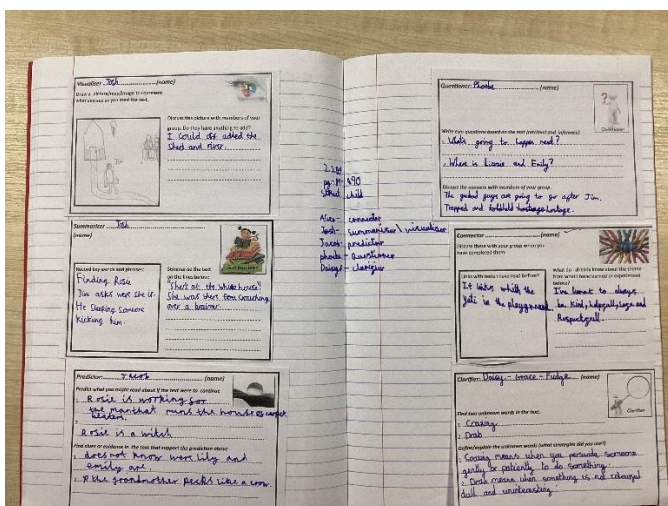 Visualiser Josh (name)
Draw a picture/map/image to represent
what you see as you read the text.
Discuss this picture with members of your
group. Do they have anything to add?
I could off added the
shed and river.
Summariser Josh (name)
Record key words and phrases:
Finding Rosie
Jim asks were she is.
He Seeking Someone
Kicking him.
Summarise the text
on the lines below:
"Shert at the white house"
She was there
over a
Predictor Jacob (name)
Predict what you might read about if the text were to continue:
Rosie is working for
the man that runs the house
Rosie is a witch
Find clues or evidence in the text that support the prediction above:
does not know were lily and
emily are.
the grandmother pecks like a
pg
Street child
Alice - connector
Josh - summariser\visualiser
Jacob - predictor
phoebe - questioner
Daisy - clarifier
Questioner Phoebe (name)
Questioner
Write two questions based on the text (retrieval and inference)
. What's going to happen next?
. Where is Lizzie and Emily?
Discuss the answers with members of your group.
The guys are going to go after Jim.
Trapped and hostage.
Connector (name)
Discuss these with your group when you
have completed them.
Links with texts I have read before?
It links whith the
in the playground.
I'm learnt to always
be kind, and
Respectfull.
Clarifier Daisy - Grace - Fudge (name)
Clarifier
Find two unknown words in the text.
. Coaxing
. Drab
Define/explain the unknown words (what strategies did you use?)
. Coaxing means when you persuade someone
gently or patiently to do something.
. Drab means when something is not colourful
dull and uninteresting.